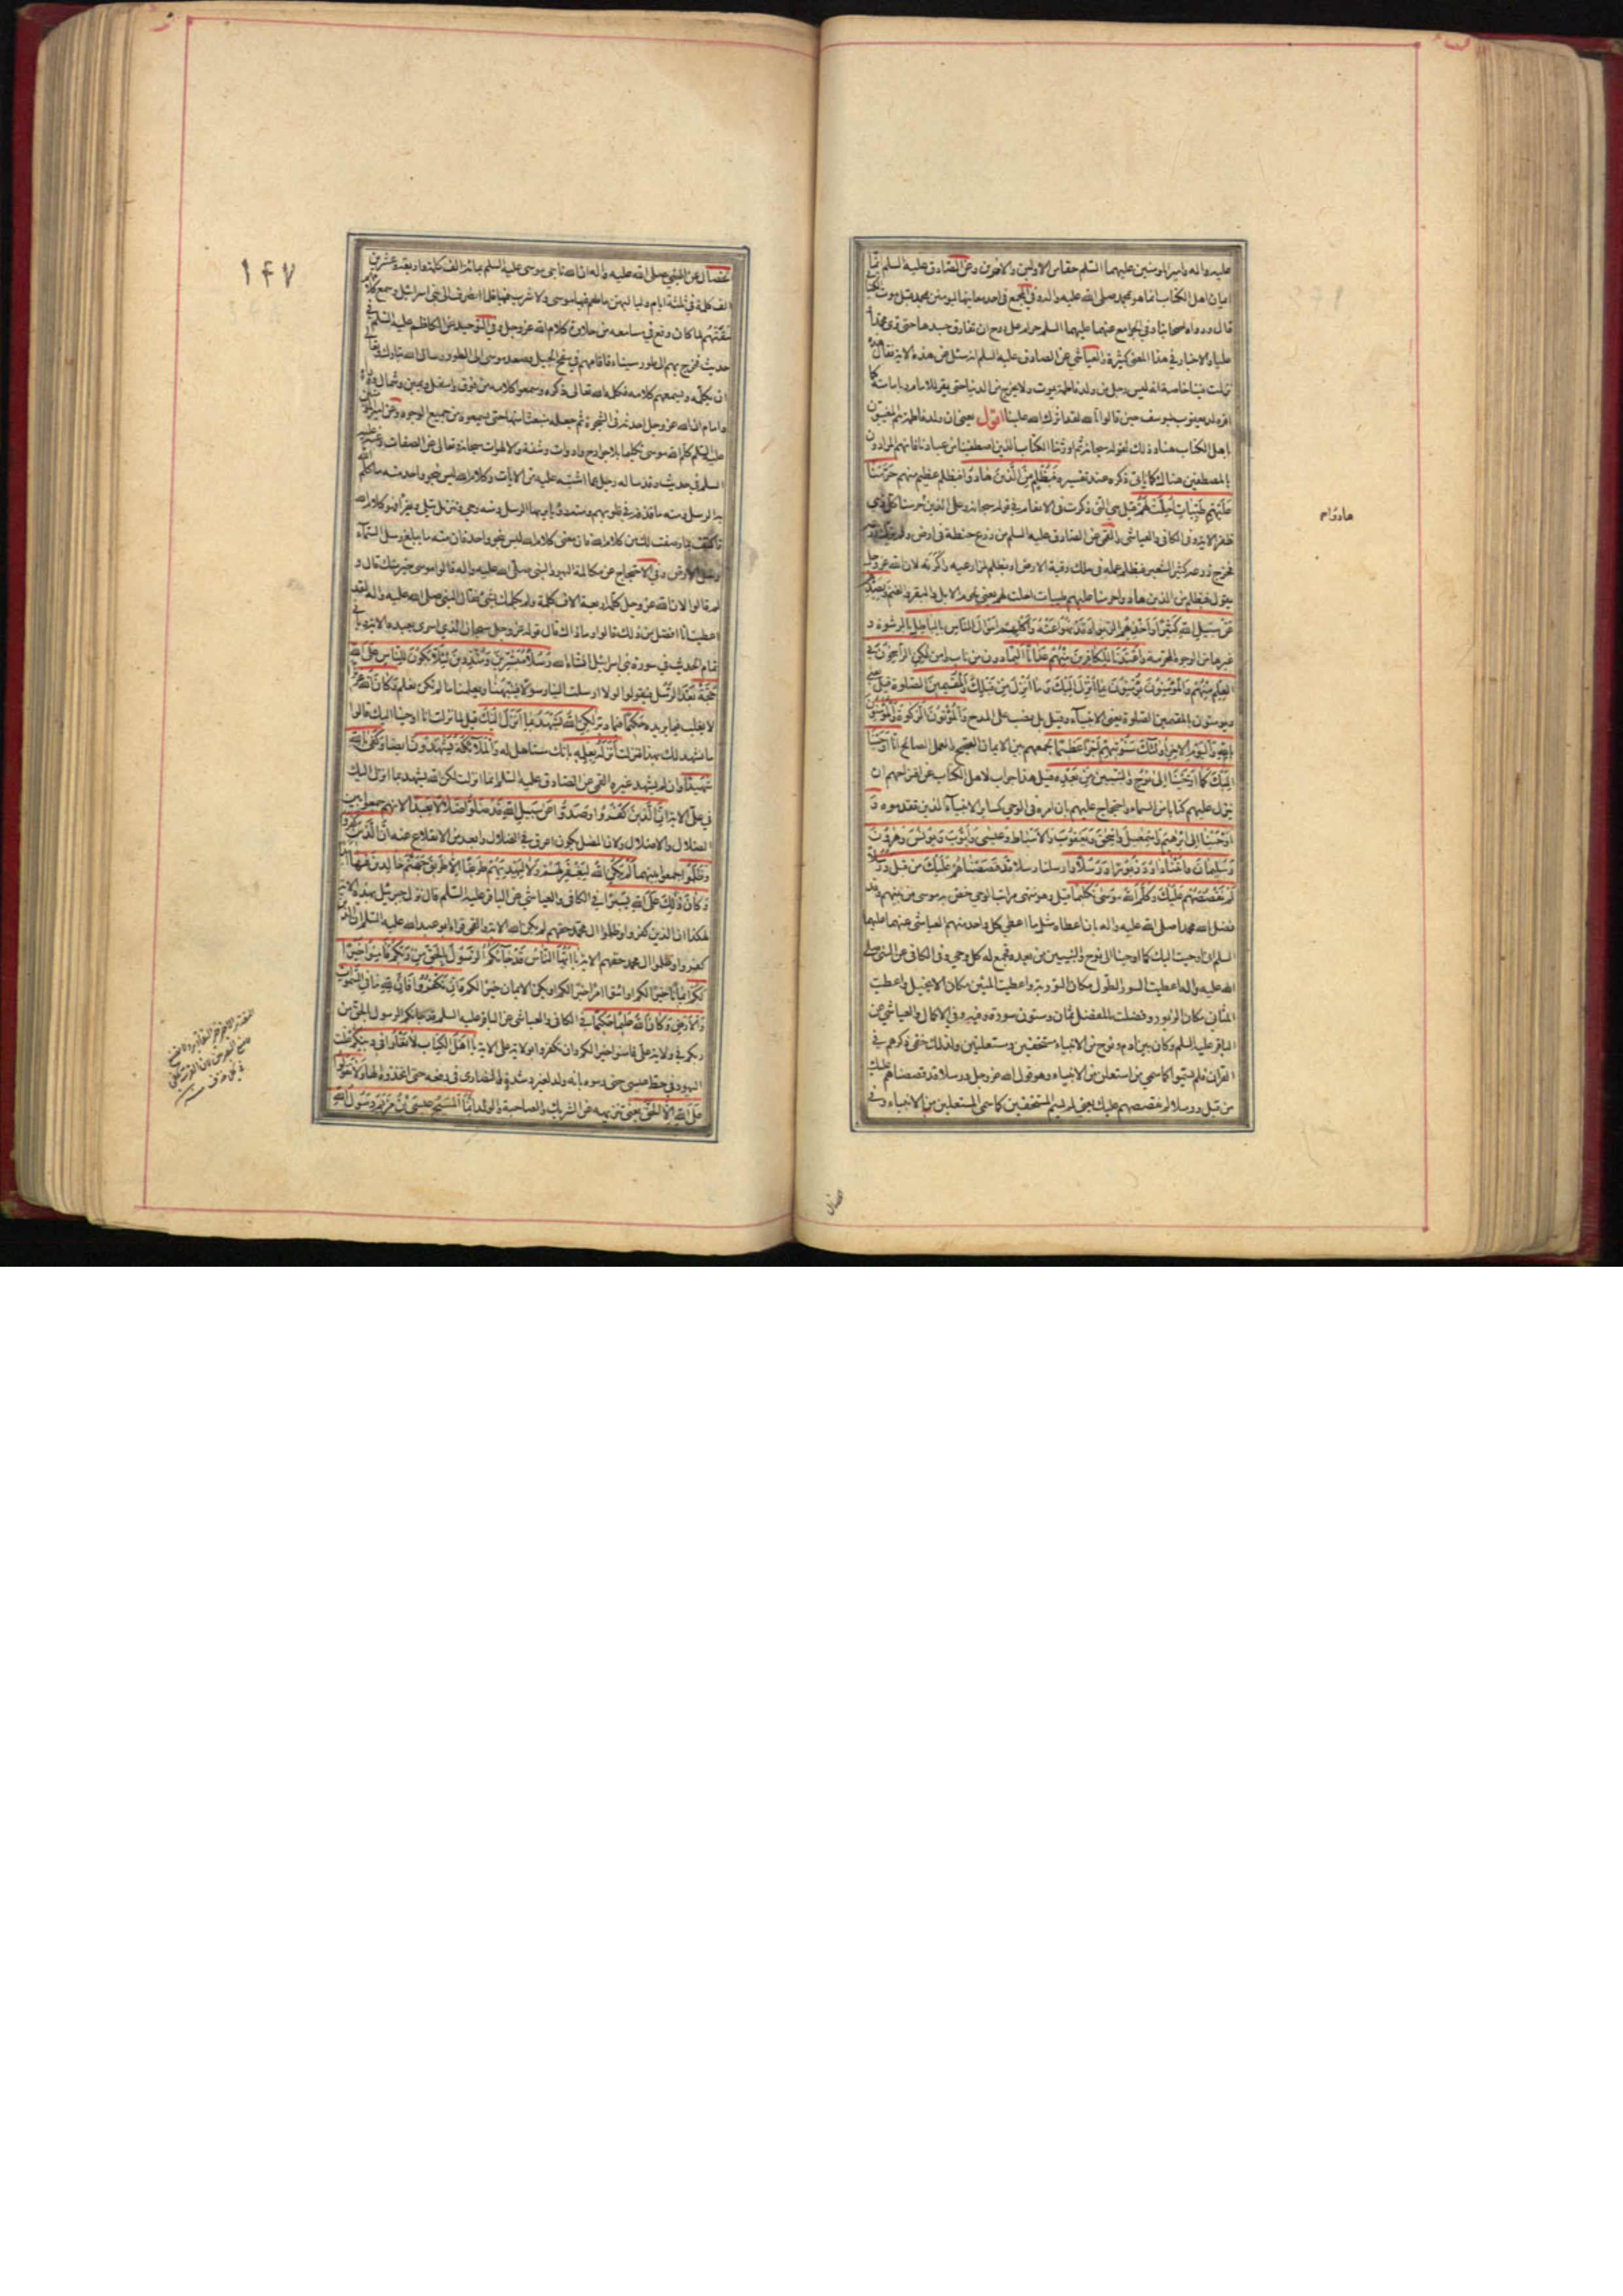 عليه واله وامير المومنين عليهما السلم حقا من الاولين والاخرين وعن الصادق عليه السلم انما
ايمان اهل الكتاب انما هو بمحمد صلى الله عليه واله وفي المجمع في احد معانيها ليومنن بمحمد قبل موت الكتابي
قال ورواه اصحابنا وفي الجوامع عنهما عليهما السلم حرام على روح ان تفارق جسدها حتى ترى محمدا و
عليا والاخبار في هذا المعنى كثيرة والعياشي عن الصادق عليه السلم انه سئل عن هذه الاية فقال هذه
نزلت فينا خاصة انه ليس رجل من ولد فاطمة يموت ولا يخرج من الدنيا حتى يقر للامام وبامامته كما
اقر ولد يعقوب ليوسف حين قالوا تالله لقد اثرك الله علينا اقول يعني ان ولد فاطمة هم المعنيون
باهل الكتاب هنا وذلك لقوله سبحانه ثم اورثنا الكتاب الذين اصطفينا من عبادنا فانهم المرادون
بالمصطفين هناك كما ياتي ذكره عند تفسيره فَبِظُلْمٍ مِنَ الَّذِينَ هَادُوا فبظلم عظيم منهم حَرَّمْنَا
عَلَيْهِمْ طَيِّبَاتٍ أُحِلَّتْ لَهُمْ قيل هي التي ذكرت في الانعام في قوله سبحانه وعلى الذين هادوا حرمنا كل ذي
ظفر الاية وفي الكافي والعياشي والقمي عن الصادق عليه السلم من زرع حنطة في ارض ولم يزك زرعه
فخرج زرعه كثير الشعير فبظلم عمله في ملك رقبة الارض او بظلم لمزارعيه واكرته لان الله عز وجل
يقول فبظلم من الذين هادوا حرمنا عليهم طيبات احلت لهم يعني لحوم الابل والبقر والغنم وَبِصَدِّهِمْ
عَنْ سَبِيلِ اللهِ كَثِيرًا وَأَخْذِهِمُ الرِّبَوا وَقَدْ نُهُوا عَنْهُ وَأَكْلِهِمْ أَمْوَالَ النَّاسِ بِالْبَاطِلِ بالرشوة و
غيرها من الوجوه المحرمة وَأَعْتَدْنَا لِلْكَافِرِينَ مِنْهُمْ عَذَابًا أَلِيمًا دون من تاب وامن لٰكِنِ الرَّاسِخُونَ فِي
الْعِلْمِ مِنْهُمْ وَالْمُؤْمِنُونَ يُؤْمِنُونَ بِمَا أُنْزِلَ إِلَيْكَ وَمَا أُنْزِلَ مِنْ قَبْلِكَ وَالْمُقِيمِينَ الصَّلٰوةَ قيل يعني
ويومنون بالمقيمين الصلوة يعني الانبياء وقيل بل نصب على المدح وَالْمُؤْتُونَ الزَّكٰوةَ وَالْمُؤْمِنُونَ
بِاللهِ وَالْيَوْمِ الْاٰخِرِ أُولٰئِكَ سَنُؤْتِيهِمْ أَجْرًا عَظِيمًا لجمعهم بين الايمان الصحيح والعمل الصالح إِنَّا أَوْحَيْنَا
إِلَيْكَ كَمَا أَوْحَيْنَا إِلٰى نُوحٍ وَالنَّبِيِّينَ مِنْ بَعْدِهِ قيل هذا جواب لاهل الكتاب عن اقتراحهم ان
ينزل عليهم كتابا من السماء واحتجاج عليهم بان امره في الوحي كساير الانبياء الذين تقدموه وَ
أَوْحَيْنَا إِلٰى إِبْرٰهِيمَ وَإِسْمٰعِيلَ وَإِسْحٰقَ وَيَعْقُوبَ وَالْأَسْبَاطِ وَعِيسٰى وَأَيُّوبَ وَيُونُسَ وَهٰرُونَ
وَسُلَيْمَانَ وَاٰتَيْنَا دَاوُدَ زَبُورًا وَرُسُلًا وارسلنا رسلا قَدْ قَصَصْنَاهُمْ عَلَيْكَ مِنْ قَبْلُ وَرُسُلًا
لَمْ نَقْصُصْهُمْ عَلَيْكَ وَكَلَّمَ اللهُ مُوسٰى تَكْلِيمًا قيل وهو منتهى مراتب الوحي خص به موسى من بينهم وقد
فضل الله محمدا صلى الله عليه واله بان اعطاه مثل ما اعطى كل واحد منهم العياشي عنهما عليهما
السلم اني اوحيت اليك كما اوحينا الى نوح والنبيين من بعده فجمع له كل وحي وفي الكافي عن النبي صلى
الله عليه واله اعطيت السور الطول مكان التورية واعطيت المئين مكان الانجيل واعطيت
المثاني مكان الزبور وفضلت بالمفصل ثمان وستون سورة وفيه وفي الاكمال والعياشي عن
الباقر عليه السلم وكان بين ادم ونوح من الانبياء مستخفين ومستعلنين ولذلك خفي ذكرهم في
القران فلم يسموا كما سمي من استعلن من الانبياء وهو قول الله عز وجل ورسلا قد قصصناهم عليك
من قبل ورسلا لم نقصصهم عليك يعني لم يسم المستخفين كما سمى المستعلنين من الانبياء وفي
الخصال
١٤٧
الخصال عن النبي صلى الله عليه واله ان الله ناجى موسى عليه السلم بمائة الف كلمة واربعة وعشرين
الف كلمة في ثلثة ايام ولياليهن ما طعم فيها موسى ولا شرب فيها فلما انصرف الى بني اسرائيل وسمع كلامهم
مقتهم لما كان وقع في مسامعه من حلاوة كلام الله عز وجل وفي التوحيد عن الكاظم عليه السلم في
حديث فخرج بهم الى طور سيناء فاقامهم في سفح الجبل وصعد موسى الى الطور وسال الله تبارك وتعالى
ان يكلمه ويسمعهم كلامه فكلمه الله تعالى ذكره وسمعوا كلامه من فوق واسفل ويمين وشمال ووراء
وامام ان الله عز وجل احدثه في الشجرة ثم جعله منبعثا منها حتى سمعوه من جميع الوجوه وعن امير المؤمنين
عليه السلم كلم الله موسى تكليما بلا جوارح وادوات وشفة ولا لهوات سبحانه وتعالى عن الصفات وعنه عليه
السلم في حديث وقد ساله رجل عما اشتبه عليه من الايات وكلام الله ليس بنحو واحد منه ما كلم الله
به الرسل ومنه ما قذفه في قلوبهم ومنه رؤيا يريها الرسل ومنه وحي وتنزيل يتلى ويقرا فهو كلام الله
فاكتف بما وصفت لك من كلام الله فان معنى كلام الله ليس بنحو واحد فان منه ما يبلغ رسل السماء
رسل الارض وفي الاحتجاج عن مكالمة اليهود النبي صلى الله عليه واله قالوا موسى خير منك قال و
لم قالوا لان الله عز وجل كلمه اربعة الاف كلمة ولم يكلمك بشيء فقال النبي صلى الله عليه واله لقد
اعطيت انا افضل من ذلك قالوا وما ذاك قال قوله عز وجل سبحان الذي اسرى بعبده الاية وياتي
تمام الحديث في سورة بني اسرائيل انشاء الله رُسُلًا مُبَشِّرِينَ وَمُنْذِرِينَ لِئَلَّا يَكُونَ لِلنَّاسِ عَلَى اللهِ
حُجَّةٌ بَعْدَ الرُّسُلِ فيقولوا لولا ارسلت الينا رسولا فينبهنا ويعلمنا ما لم نكن نعلم وَكَانَ اللهُ عَزِيزًا
لا يغلب فيما يريده حَكِيمًا فيما دبر لٰكِنِ اللهُ يَشْهَدُ بِمَا أَنْزَلَ إِلَيْكَ قيل لما نزلت انا اوحينا اليك قالوا
ما نشهد لك بهذا فنزلت أَنْزَلَهُ بِعِلْمِهِ بانك مستاهل له وَالْمَلَائِكَةُ يَشْهَدُونَ ايضا وَكَفٰى بِاللهِ
شَهِيدًا وان لم يشهد غيره القمي عن الصادق عليه السلم انما انزلت لكن الله يشهد بما انزل اليك
في علي الاية إِنَّ الَّذِينَ كَفَرُوا وَصَدُّوا عَنْ سَبِيلِ اللهِ قَدْ ضَلُّوا ضَلَالًا بَعِيدًا لانهم جمعوا بين
الضلال والاضلال ولان المضل يكون اعرق في الضلال وابعد من الانقلاع عنه إِنَّ الَّذِينَ كَفَرُوا
وَظَلَمُوا جمعوا بينهما لَمْ يَكُنِ اللهُ لِيَغْفِرَ لَهُمْ وَلَا لِيَهْدِيَهُمْ طَرِيقًا إِلَّا طَرِيقَ جَهَنَّمَ خَالِدِينَ فِيهَا أَبَدًا
وَكَانَ ذٰلِكَ عَلَى اللهِ يَسِيرًا في الكافي والعياشي عن الباقر عليه السلم قال نزل جبرئيل بهذه الاية
هكذا ان الذين كفروا وظلموا ال محمد حقهم لم يكن الله الاية والقمي قرا ابو عبد الله عليه السلم ان الذين
كفروا وظلموا ال محمد حقهم الاية يَا أَيُّهَا النَّاسُ قَدْ جَاءَكُمُ الرَّسُولُ بِالْحَقِّ مِنْ رَبِّكُمْ فَاٰمِنُوا خَيْرًا
لَكُمْ ايمانا خيرا لكم او ائتوا امرا خيرا لكم او يكن الايمان خيرا لكم وَإِنْ تَكْفُرُوا فَإِنَّ لِلّٰهِ مَا فِي السَّمٰوَاتِ
وَالْأَرْضِ وَكَانَ اللهُ عَلِيمًا حَكِيمًا في الكافي والعياشي عن الباقر عليه السلم قد جاءكم الرسول بالحق من
ربكم في ولاية علي فامنوا خيرا لكم وان تكفروا بولاية علي الاية يَا أَهْلَ الْكِتَابِ لَا تَغْلُوا فِي دِينِكُمْ غلت
اليهود في حط عيسى حتى رموه بانه ولد لغير رشدة والنصارى في رفعه حتى اتخذوه الها وَلَا تَقُولُوا
عَلَى اللهِ إِلَّا الْحَقَّ يعني تنزيهه عن الشريك والصاحبة والولد إِنَّمَا الْمَسِيحُ عِيسَى بْنُ مَرْيَمَ رَسُولُ اللهِ